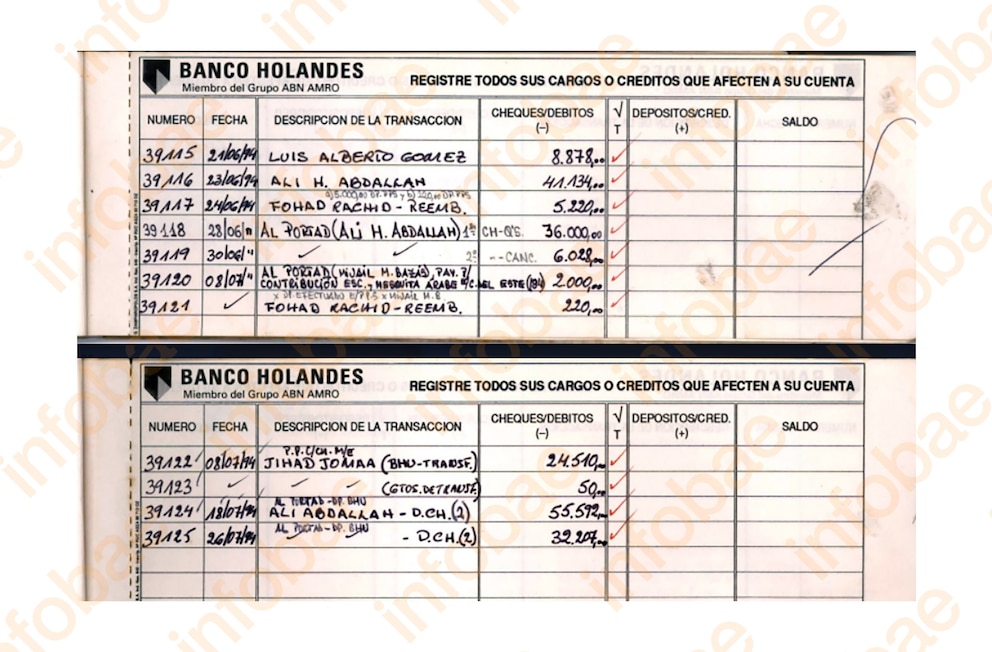 BANCO HOLANDES
Miembro del Grupo ABN AMRO
REGISTRE TODOS SUS CARGOS O CREDITOS QUE AFECTEN A SU CUENTA
NUMERO FECHA DESCRIPCION DE LA TRANSACCION CHEQUES/DEBITOS (–) √ T DEPOSITOS/CRED. (+) SALDO
39115 21/06/94 LUIS ALBERTO GOMEZ 8.878,00 ✓
39116 23/06/94 ALI H. ABDALLAH 41.134,00 ✓
a) 5.000,00 DP. PPS y b) 220,00 DP. PPS
39117 24/06/94 FOHAD RACHID - REEMB. 5.220,00 ✓
39118 28/06/" AL PORTAD (ALI H. ABDALLAH) 1º CH-G'S. 36.000,00 ✓
39119 30/06/" 2º -- CANC. 6.028,00 ✓
AL PORTAD (HIJAIL M. BAZAS), PAV. P/
39120 08/07/" CONTRIBUCIÓN ESC. y MESQUITA ARABE P/C. DEL ESTE (94) 2.000,00 ✓
x DP. EFECTUADO E/PPS x HIJAIL M.B.
39121 FOHAD RACHID - REEMB. 220,00 ✓
BANCO HOLANDES
Miembro del Grupo ABN AMRO
REGISTRE TODOS SUS CARGOS O CREDITOS QUE AFECTEN A SU CUENTA
NUMERO FECHA DESCRIPCION DE LA TRANSACCION CHEQUES/DEBITOS (–) √ T DEPOSITOS/CRED. (+) SALDO
P.P. C/CH. M/E
39122 08/07/94 JIHAD JOMAA (BHU-TRANSF.) 24.510,00 ✓
39123 (GTOS. DE TRANSF.) 50,00 ✓
AL PORTAD - DP. BHU
39124 18/07/94 ALI ABDALLAH - D.CH.(2) 55.592,00 ✓
AL PORTAD - DP. BHU
39125 26/07/94 - D.CH.(2) 32.207,00 ✓
infobae